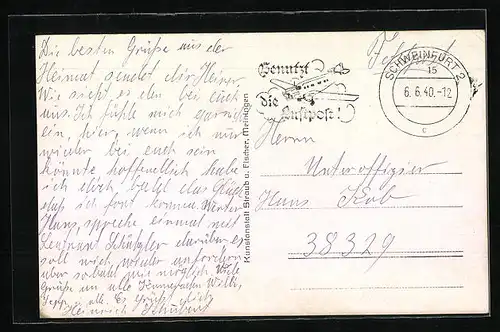 Die besten Grüße aus der
Heimat sendet dir Heiner.
Wie sieht es den bei euch
aus. Ich fühle mich garnicht
ein, hier, wenn ich nur
wieder bei euch sein
könnte hoffentlich habe
ich doch bald das Glück
daß ich fort komme. Lieber
Hans, spreche einmal mit
Leutnant Schüßler darüber er
soll mich wieder anfordern
aber sobald wie möglich. Viele
Grüße an alle Kameraden Willi,
Sepp u. alle. Es grüßt dich
Heinrich Schubert
Kunstanstalt Straub u. Fischer, Meiningen
Benutzt
die
Luftpost!
SCHWEINFURT 2
15
6.6.40.-12
c
Feldpost
Herrn
Unteroffizier
Hans Kob
38329